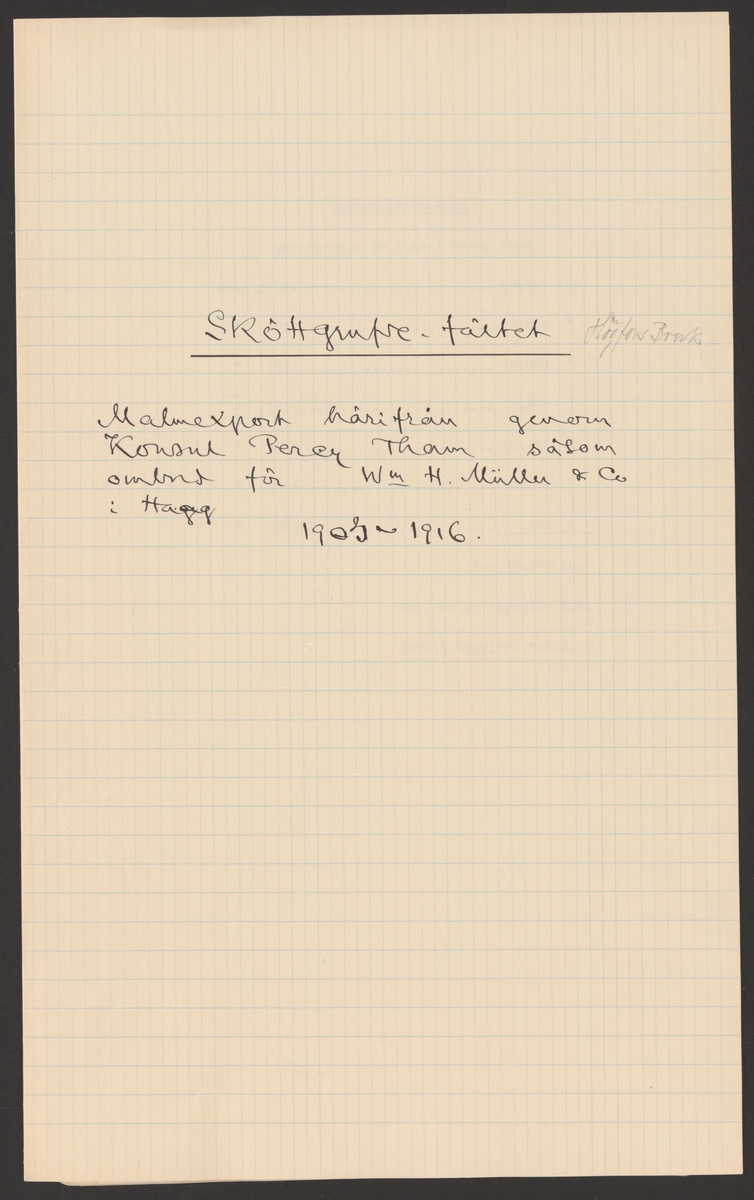 Sköttgrufve-fältet Högfors Bruk
Malmexport härifrån genom
Konsul Percy Tham såsom
ombud för Wm H. Müller & Co
i Haag
1905 ~ 1916.